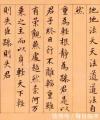 地地法天天法道道法自
然
重為輕根靜為躁君是以
君子終日行不離輜重雖
有榮觀燕處超然奈何萬
乘之主而以身輕天下輕
則失臣躁則失君